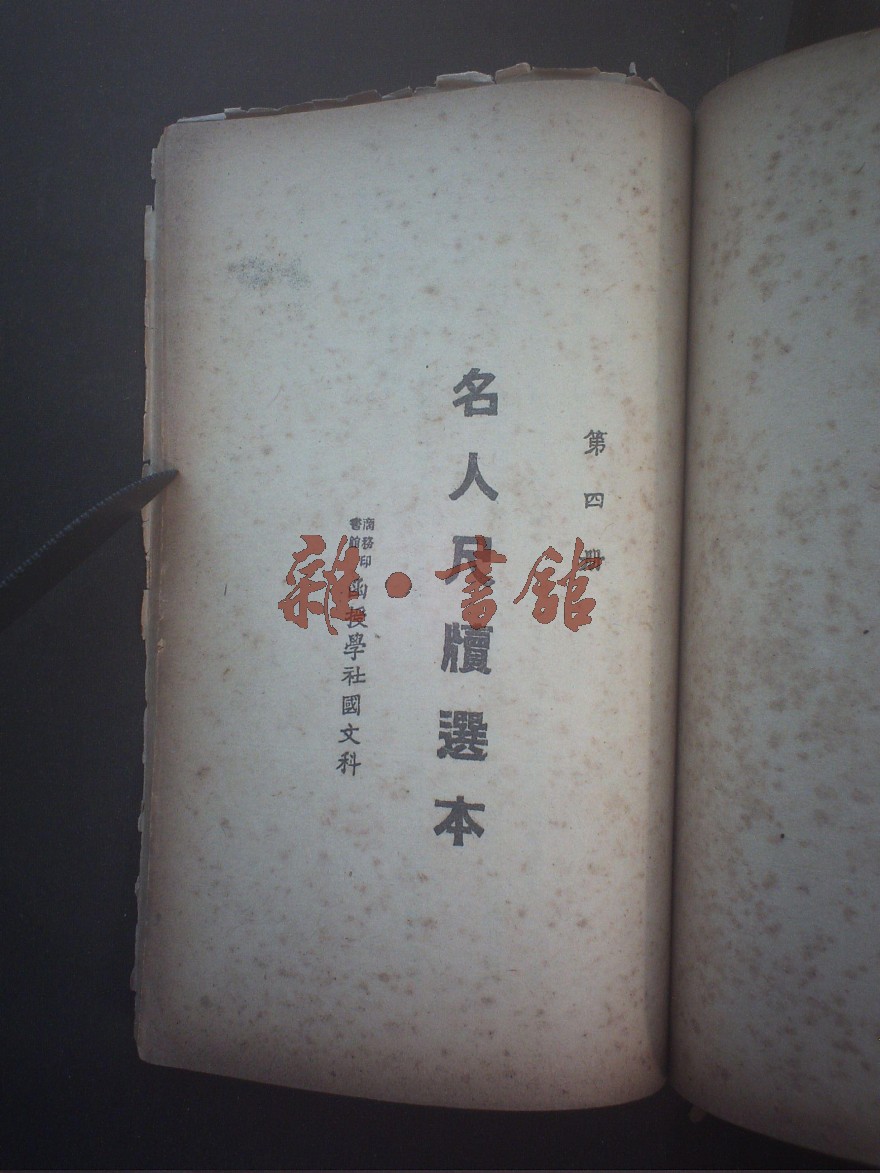 第四册
名人尺牘選本
商務印書館函授學社國文科
雜·書館